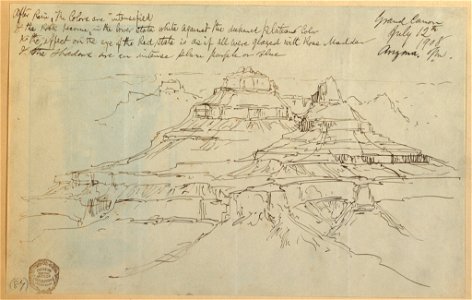 After Rain, The Colors are intensified
& the Rock become, in the lower State white against the
& the effect on the eye of the Red state is as if all were glazed with Rose Madder
& the Shadows are an intense plum purple or blue
Grand Canon
July 12th
Arizona